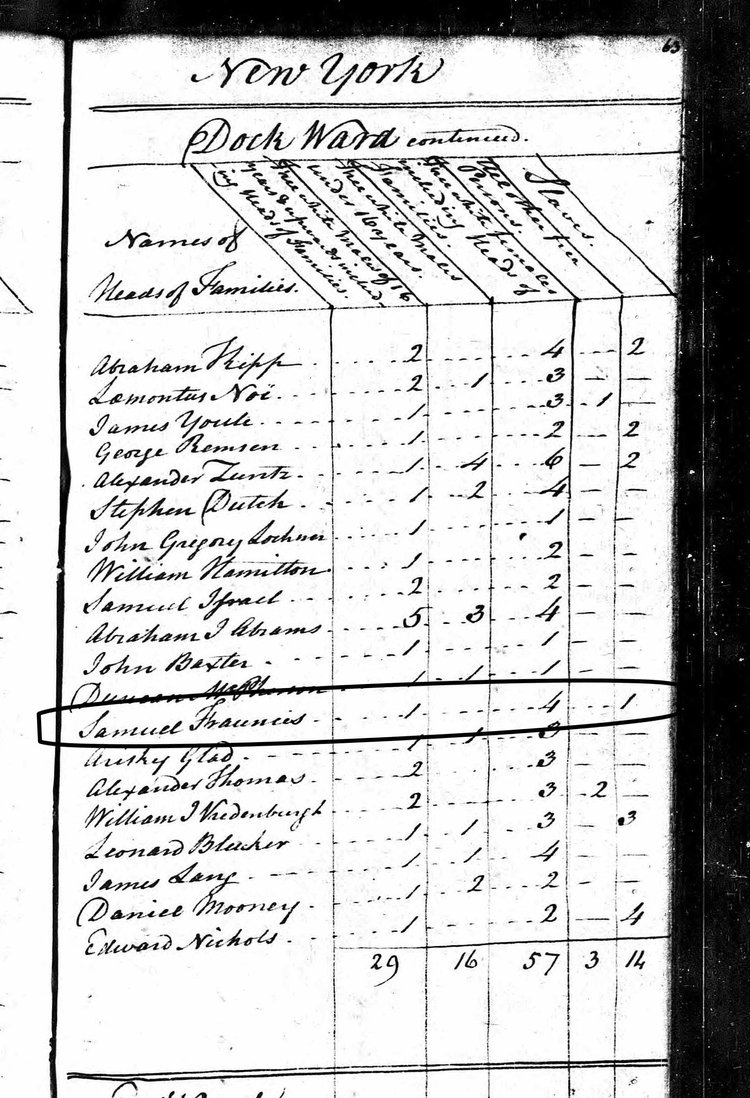 63
New York
Dock Ward continued.
Names of
Heads of Families.
Free white Males of 16
years & upwards includ-
ing Heads of Families.
Free white Males
under 16 years.
Free white females
including Heads of
Families.
All other free
Persons.
Slaves.
Abraham Kipp 2 4 2
Læmontus Noï 2 1 3 — —
James Youle 1 3 1 —
George Remsen 1 2 — 2
Alexander Zuntz 1 4 6 — 2
Stephen Dutch 1 2 4 — —
John Gregory Lochner 1 1 — —
William Hamilton 1 2 — —
Samuel Israel 2 2 — —
Abraham I Abrams 5 3 4 — —
John Baxter 1 1 — —
Duncan McPherson 1 1 1 — —
Samuel Fraunces 1 4 1
Glad 1 1 3 — —
Alexander Thomas 2 3 — —
William I Vredenburgh 2 3 2 —
Leonard Bleeker 1 1 3 — 3
James Lang 1 1 4 — —
Daniel Mooney 1 2 2 — —
Edward Nichols 1 2 — 4
29 16 57 3 14